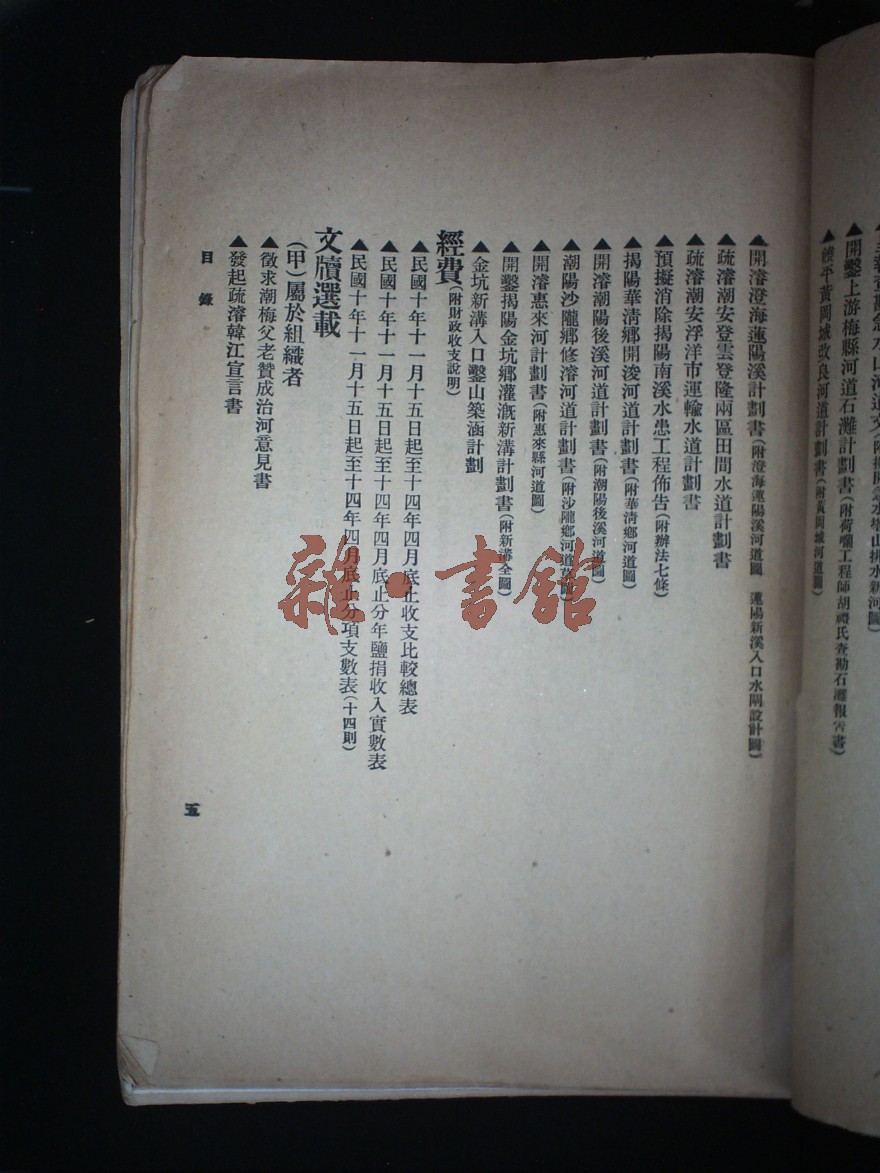 開鑿上游梅縣河道石灘計劃書(附荷蘭工程師胡禮氏查勘石灘報告書)
饒平黃岡城改良河道計劃書(附黃岡城河道圖)
▲開濬澄海蓮陽溪計劃書(附澄海蓮陽溪河道圖 蓮陽新溪入口水閘設計圖)
▲疏濬潮安登雲登隆兩區田間水道計劃書
▲疏濬潮安浮洋市運輸水道計劃書
▲預擬消除揭陽南溪水患工程佈告(附辦法七條)
▲揭陽華清鄉開浚河道計劃書(附華清鄉河道圖)
▲開濬潮陽後溪河道計劃書(附潮陽後溪河道圖)
▲潮陽沙隴鄉修濬河道計劃書(附沙隴鄉河道草圖)
▲開濬惠來河計劃書(附惠來縣河道圖)
▲開鑿揭陽金坑鄉灌漑新溝計劃書(附新溝全圖)
▲金坑新溝入口鑿山築涵計劃
經費(附財政收支說明)
▲民國十年十一月十五日起至十四年四月底止收支比較總表
▲民國十年十一月十五日起至十四年四月底止分年鹽捐收入實數表
▲民國十年十一月十五日起至十四年四月底止分項支數表(十四則)
文牘選載
(甲)屬於組織者
▲徵求潮梅父老贊成治河意見書
▲發起疏濬韓江宣言書
目錄
五
雜·書館